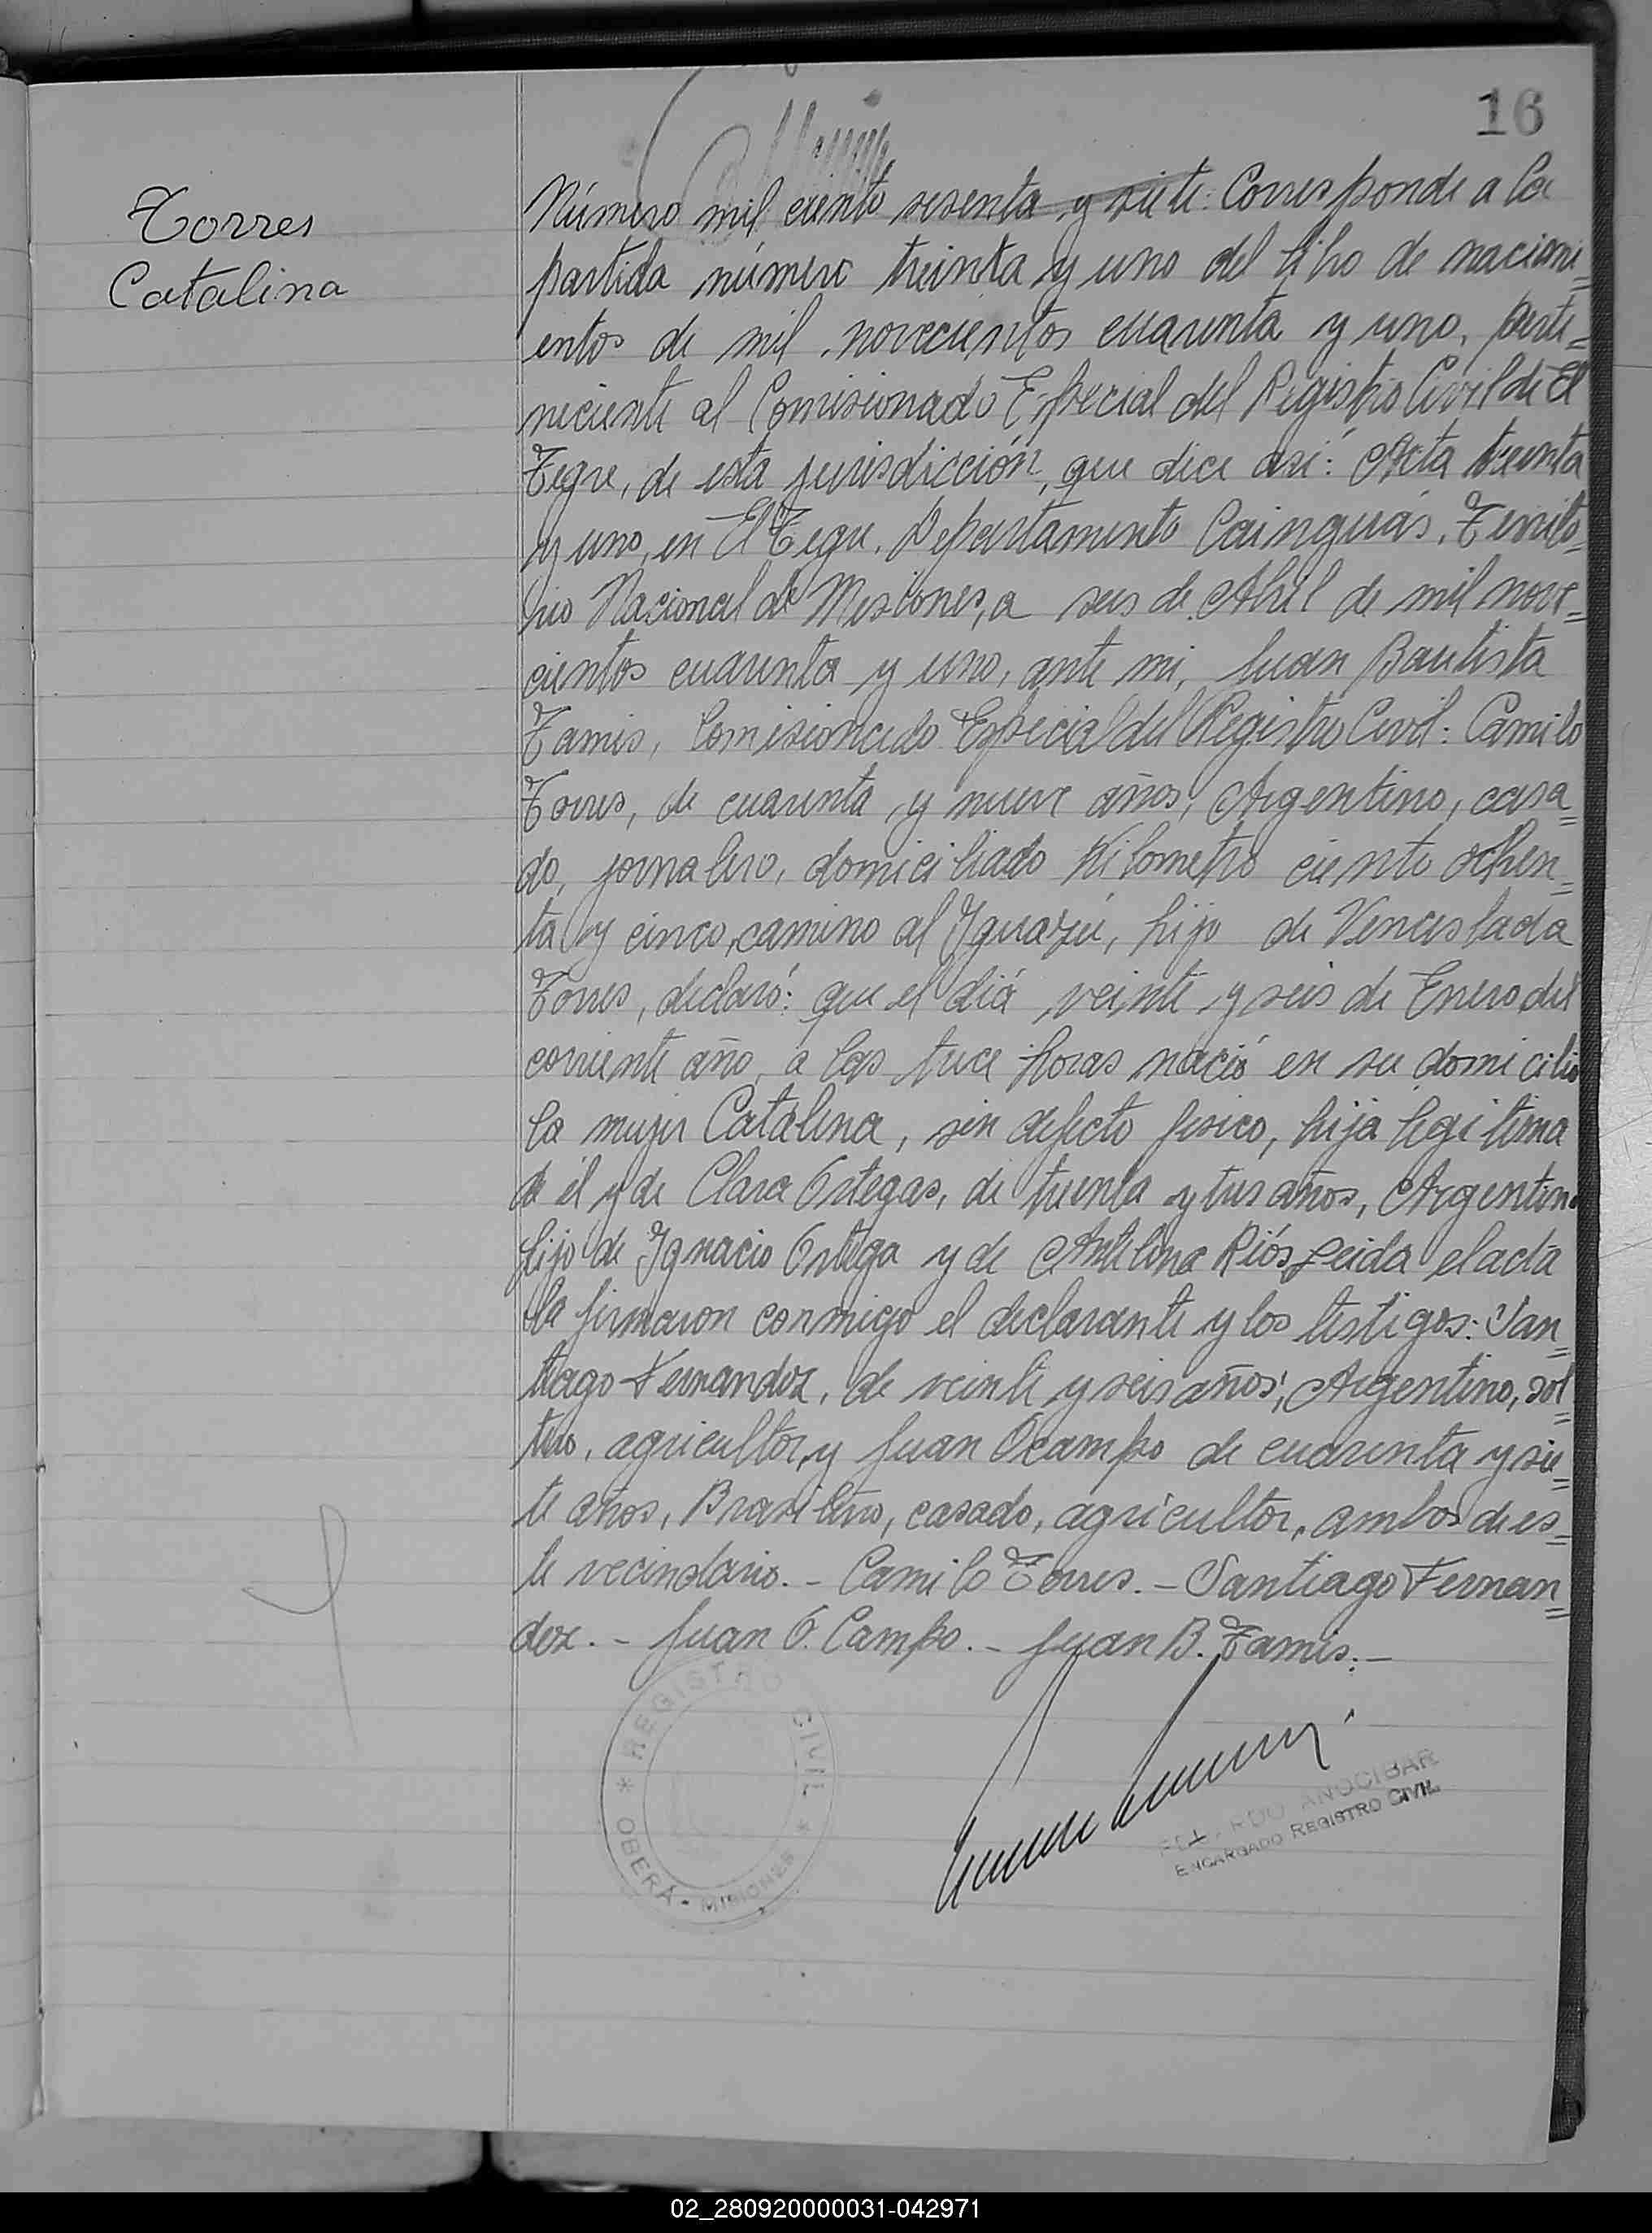 16
Torres
Catalina
Número mil ciento sesenta y siete: Corresponde a la
partida número treinta y uno del libro de nacimi=
entos de mil novecientos cuarenta y uno, perte=
neciente al Comisionado Especial del Registro Civil de El
Tigre, de esta jurisdicción, que dice así: Acta treinta
y uno, en El Tigre, Departamento Cainguás, Territo=
rio Nacional de Misiones, a seis de Abril de mil nove=
cientos cuarenta y uno, ante mi, Juan Bautista
Tamis, Comisionado Especial del Registro Civil: Camilo
Torres, de cuarenta y nueve años, Argentino, casa=
do, jornalero, domiciliado Kilometro ciento ochen=
ta y cinco, camino al Yguazú, hijo de Venceslada
Torres, declaró: que el diá veinte y seis de Enero del
corriente año, a las trece horas nació en su domicilio
la mujer Catalina, sin defecto fisico, hija legitima
de él y de Clara Ortegas, de treinta y tres años, Argentina
hijo de Ygnacio Ortega y de Riós. Leida el acta
la firmaron conmigo el declarante y los testigos: San=
tiago Fernandez, de veinte y seis años, Argentino, sol=
tero, agricultor, y Juan Ocampo de cuarenta y sie=
te años, Brasileño, casado, agricultor, ambos de es=
te vecindario. - Camilo Torres. - Santiago Fernan=
dez. - Juan O. Campo. - Juan B. Tamis. -
REGISTRO CIVIL
* OBERÁ - MISIONES *
ANOCIBAR
ENCARGADO REGISTRO CIVIL
02_280920000031-042971